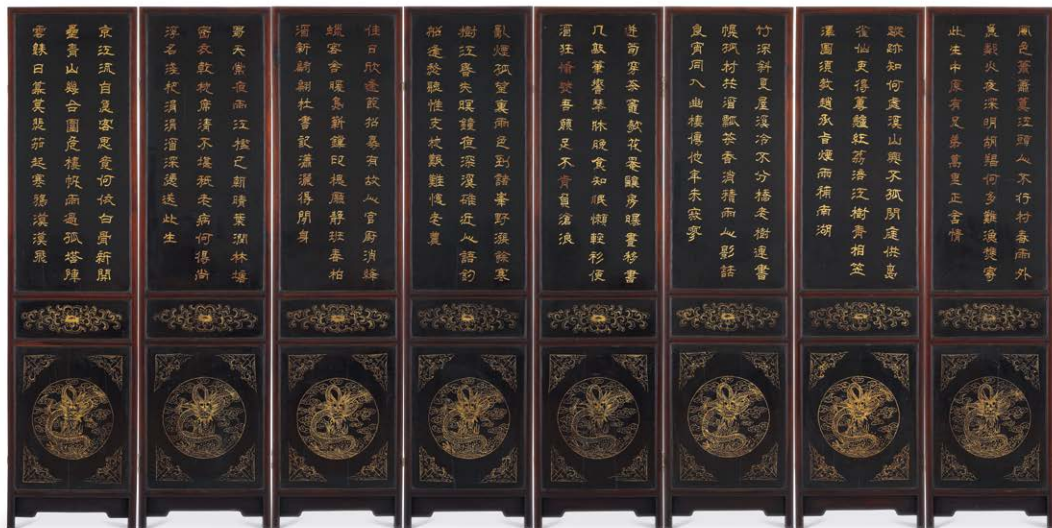 風色蕭蕭暮江頭人不行村舂雨外
急鄰火夜深明胡羯何多難漁樵寄
此生中原有兄弟萬里正含情
蹤跡知何處溪山興不孤閒庭供鳥
雀仙吏得蓴鱸紅荔浯江樹青
圖須教趙承旨煙雨補南湖
竹深斜見屋溪冷不分橋老樹連書
幌孤村共酒瓢茶香消積雨人影話
良宵同入幽棲傳他年未寂寥
菊穿茶竇款花房曝畫移書
几敲筆響琴牀晚食知眠懶輕衫便
酒狂吾願足不肯負滄浪
亂煙孤望裏雨色到諸峯野漲餘寒
樹江昏失暝鐘夜深溪碓近人語釣
船逢愁聽惟支枕艱難愧老農
佳日欣逢節招尋有故人官廚消絳
蠟客舍暖烏薪鐘印槐廳靜班春柏
酒新翩翩杜書記瀟灑得閒身
蜀天常夜雨江檻已朝晴葉潤林塘
密衣乾枕席清不堪祗老病何得尚
浮名淺把涓涓酒深憑送此生
京江流自急客思意何依白骨新開
壘青山幾合圍危樓帆雨過孤塔陣
雲歸日暮莫悲笳起寒鴉漠漠飛